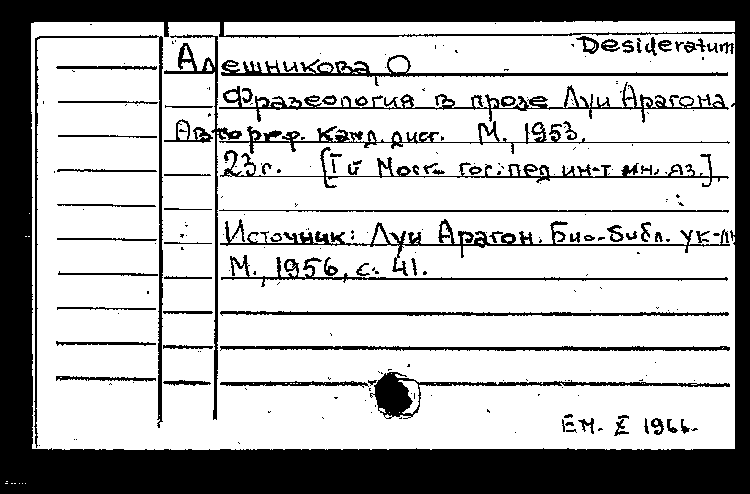 Desideratum
Алешникова, О
Фразеология в прозе Луи Арагона.
Автореф. канд. дисс. М., 1953.
23 с. [I й Моск. гос. пед ин-т ин. яз.].
Источник: Луи Арагон. Био-библ. ук-ль
М., 1956, с. 41.
ЕМ. X 1966.